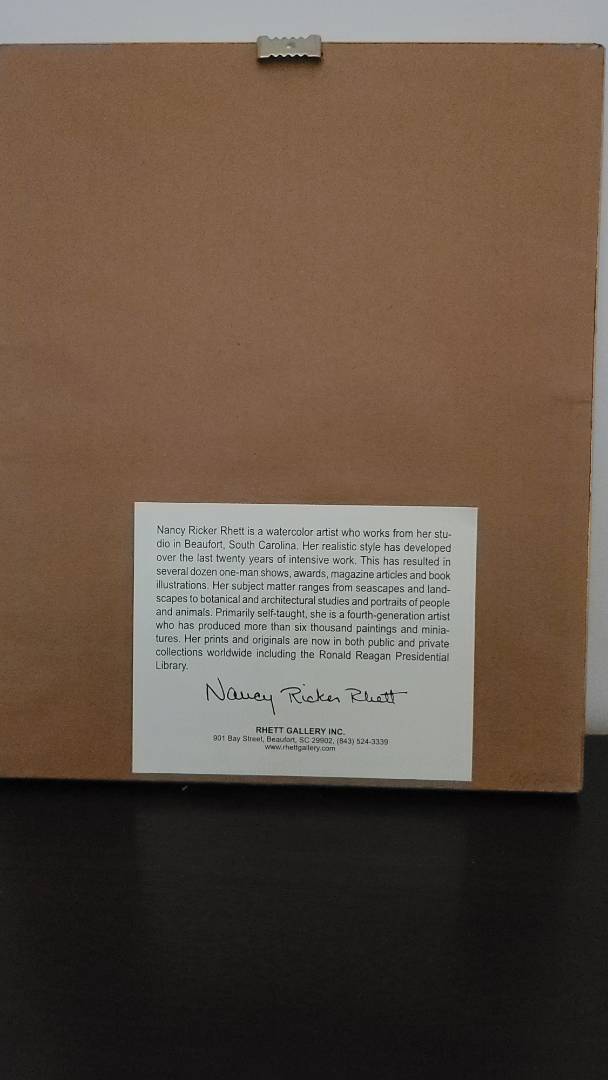 Nancy Ricker Rhett is a watercolor artist who works from her stu-
dio in Beaufort, South Carolina. Her realistic style has developed
over the last twenty years of intensive work. This has resulted in
several dozen one-man shows, awards, magazine articles and book
illustrations. Her subject matter ranges from seascapes and land-
scapes to botanical and architectural studies and portraits of people
and animals. Primarily self-taught, she is a fourth-generation artist
who has produced more than six thousand paintings and minia-
tures. Her prints and originals are now in both public and private
collections worldwide including the Ronald Reagan Presidential
Library.
Nancy Ricker Rhett
RHETT GALLERY INC.
901 Bay Street, Beaufort, SC 29902, (843) 524-3339
www.rhettgallery.com